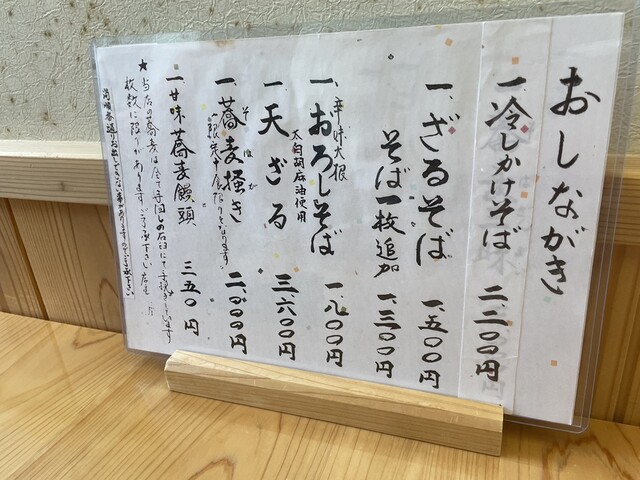 おしながき
一、冷しかけそば 二、二〇〇円
一、ざるそば 一、五〇〇円
そば一枚追加 一、三〇〇円
辛味大根
一、おろしそば 一、八〇〇円
太白胡麻油使用
一、天ざる 三、六〇〇円
そばがき
一、蕎麦掻き 二、〇〇〇円
一、甘味 蕎麦饅頭 三五〇円
★当店の蕎麦は全て手回しの石臼にて手挽きします
枚数に限りがあります。ご了承下さい 店主